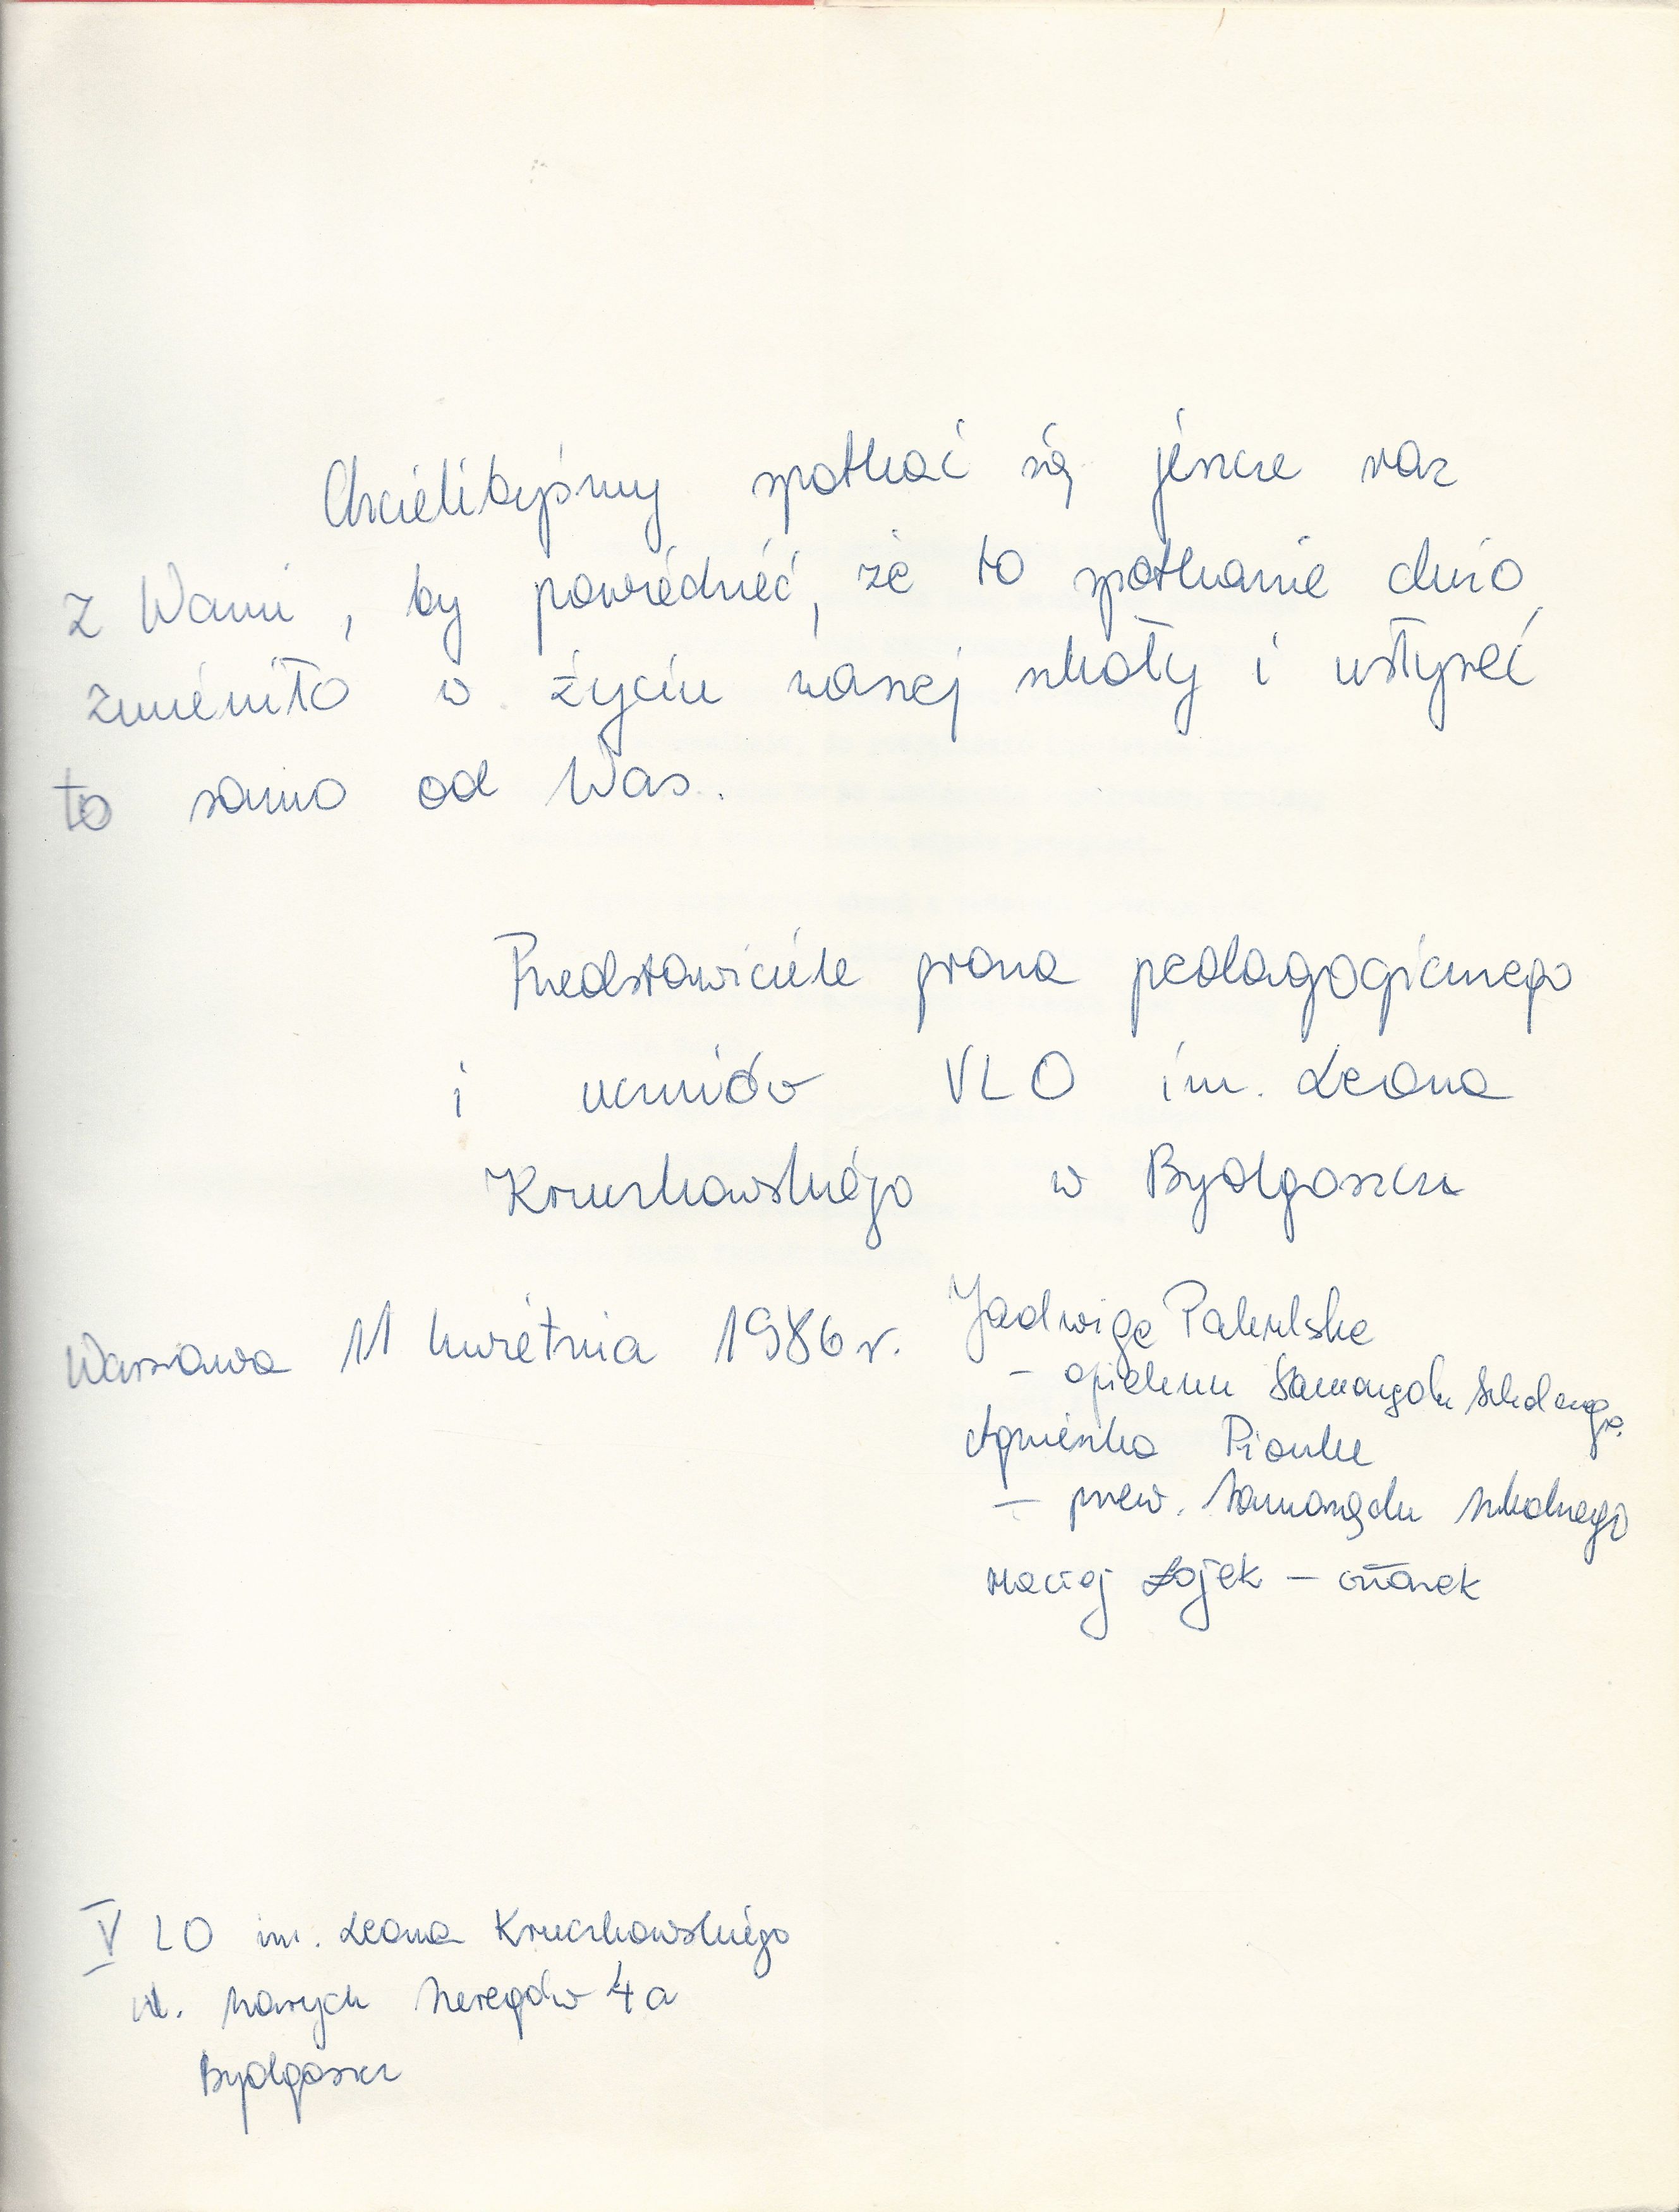 Chcielibyśmy spotkać się jeszcze raz
z Wami, by powiedzieć, że to spotkanie dużo
zmieniło w życiu naszej szkoły i usłyszeć
to samo od Was.
Przedstawiciele grona pedagogicznego
i uczniów VLO im. Leona
Kruczkowskiego w Bydgoszczy
Warszawa 11 kwietnia 1986 r.
Jadwiga Pakulska
– opiekun Samorządu Szkolnego
Agnieszka Pionke
– przew. Samorządu Szkolnego
Maciej Łojek – członek
V LO im. Leona Kruczkowskiego
ul. Szarych Szeregów 4a
Bydgoszcz